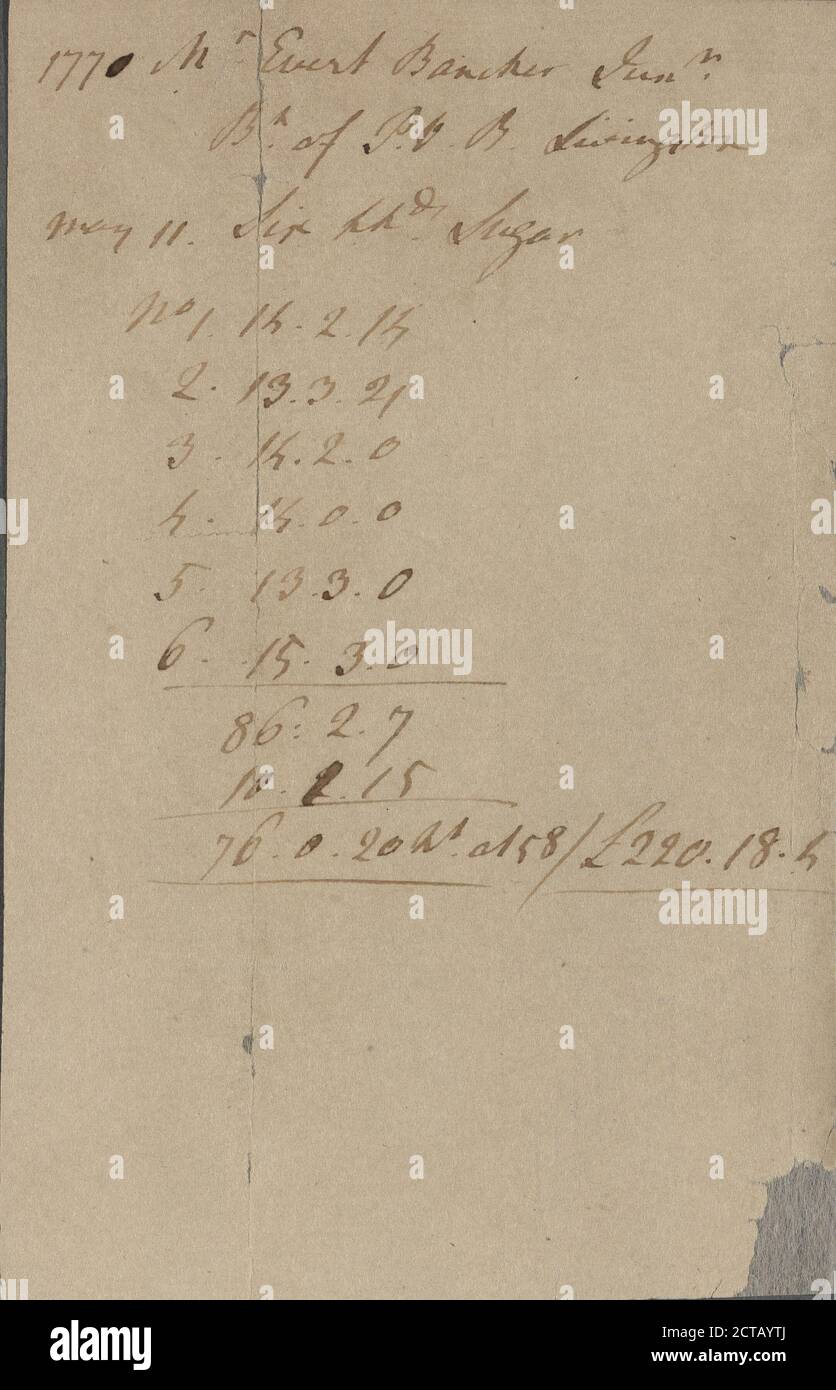 1770 Mr Evert Bancker Junr
Bt of P. V. B. Livingston
May 11. Six hhds Sugar
No 1. 14. 2. 14
2. 13. 3. 21
3. 14. 2. 0
4. 14. 0. 0
5. 13. 3. 0
6. 15. 3. 0
86. 2. 7
10. 1. 15
76. 0. 20 Nt. at 58/ £220. 18. 4
alamy
Image ID: 2CTAYTJ
www.alamy.com